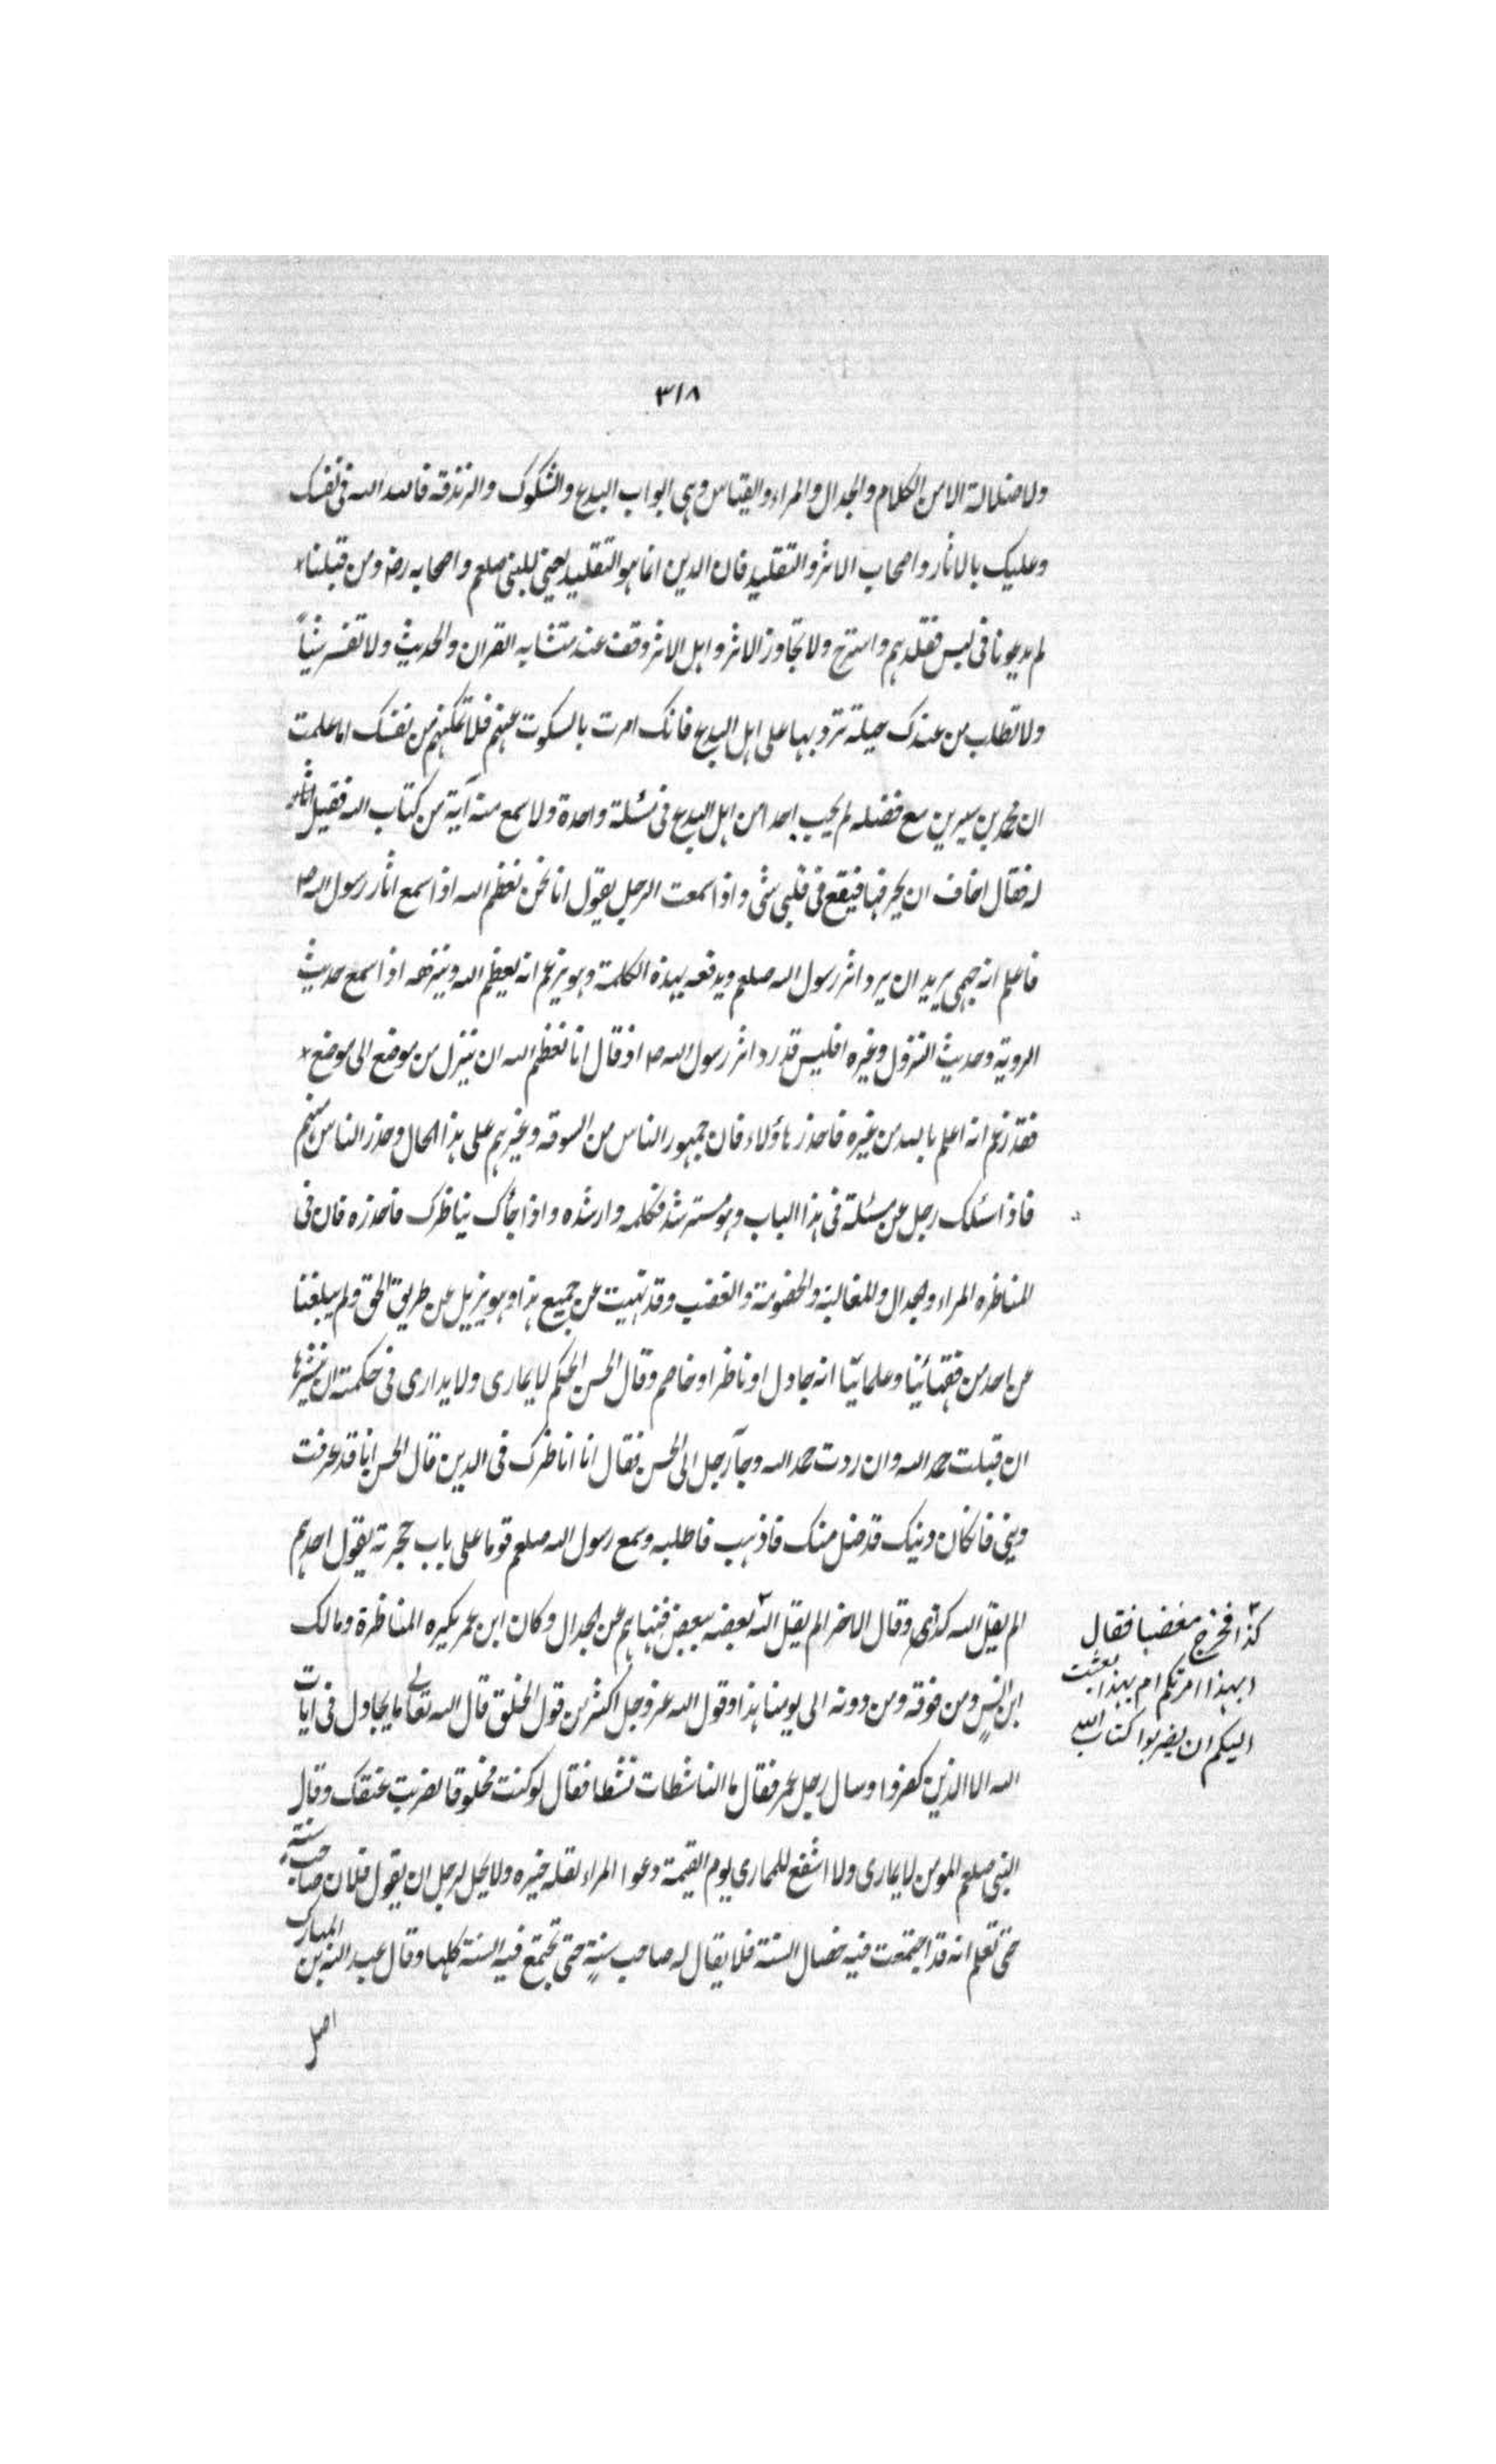 ٣١٨
ولا ضلالة الا من الكلام والجدال والمراء والقياس وهى ابواب البدع والشكوك والزندقة فالله الله فى نفسك
وعليك بالاثار واصحاب الاثر والتقليد فان الدين انما هو التقليد يعنى للنبى صلعم واصحابه رضـ ومن قبلنا
لم يدعونا فى لبس فقلدهم واسترح ولا تجاوز الاثر واهل الاثر وقف عند متشابه القران والحديث ولا تفسر شيئاً
ولا تطلب من عندك حيلة ترد بها على اهل البدع فانك امرت بالسكوت عنهم فلا تمكنهم من نفسك اما علمت
ان محمد بن سيرين مع فضله لم يجب احدا من اهل البدع فى مسئلة واحدة ولا سمع منه آية من كتاب الله فقيل
له فقال اخاف ان يحرفها فيقع فى قلبى شئ واذا سمعت الرجل يقول انا نحن نعظم الله اذا سمع اثار رسول الله ص
فاعلم انه جهمى يريد ان يرد اثر رسول الله صلعم ويدفعه بهذه الكلمة وهو يزعم انه يعظم الله وينزهه اذا سمع حديث
الروية وحديث النزول وغيره افليس قد رد اثر رسول الله ص اذ قال انا نعظم الله ان ينزل من موضع الى موضع
فقد زعم انه اعلم بالله من غيره فاحذر هاؤلاء فان جمهور الناس من السوقة وغيرهم على هذا الحال وحذر الناس منهم
فاذا سئلك رجل عن مسئلة فى هذا الباب وهو مسترشد فكلمه وارشده واذا جأك يناظرك فاحذره فان فى
المناظره المراء والجدال والمغالبة والخصومة والغضب وقد نهيت عن جميع هذا وهو يزيل عن طريق الحق ولم يبلغنا
عن احد من فقهائنا وعلمائنا انه جادل او ناظر او خاصم وقال الحسن الحكيم لا يمارى ولا يدارى فى حكمته ان ينشرها
ان قبلت حمد الله وان ردت حمد الله وجآ رجل الى الحسن فقال انا اناظرك فى الدين قال الحسن انا قد عرفت
دينى فان كان دينك قد ضل منك فاذهب فاطلبه وسمع رسول الله صلعم قوما على باب حجرته يقول احدهم
الم يقل الله كذا وقال الاخر الم يقل الله بعضه ببعض فنهاهم عن الجدال وكان ابن عمر يكره المناظرة ومالك
كذا فخرج مغضبا فقال
ابهذا امرتكم ام بهذا بعثت
اليكم ان يضربوا كتاب الله
ابن انس ومن فوقه ومن دونه الى يومنا هذا وقول الله عز وجل اكثر من قول الخلق قال الله تعالى ما يجادل فى ايات
الله الا الذين كفروا وسال رجل عمر فقال ما الناشطات نشطا فقال لو كنت محلوقا لضربت عنقك وقال
النبى صلعم المومن لا يمارى ولا اشفع للمماري يوم القيمة دعوا المراء لقلة خيره ولا يحل لرجل ان يقول فلان صاحب سنة
حتى تعلم انه قد اجتمعت فيه خصال السنة فلا يقال له صاحب سنةٍ حتى تجتمع فيه السنة كلها وقال عبد الله بن المبارك
اصل